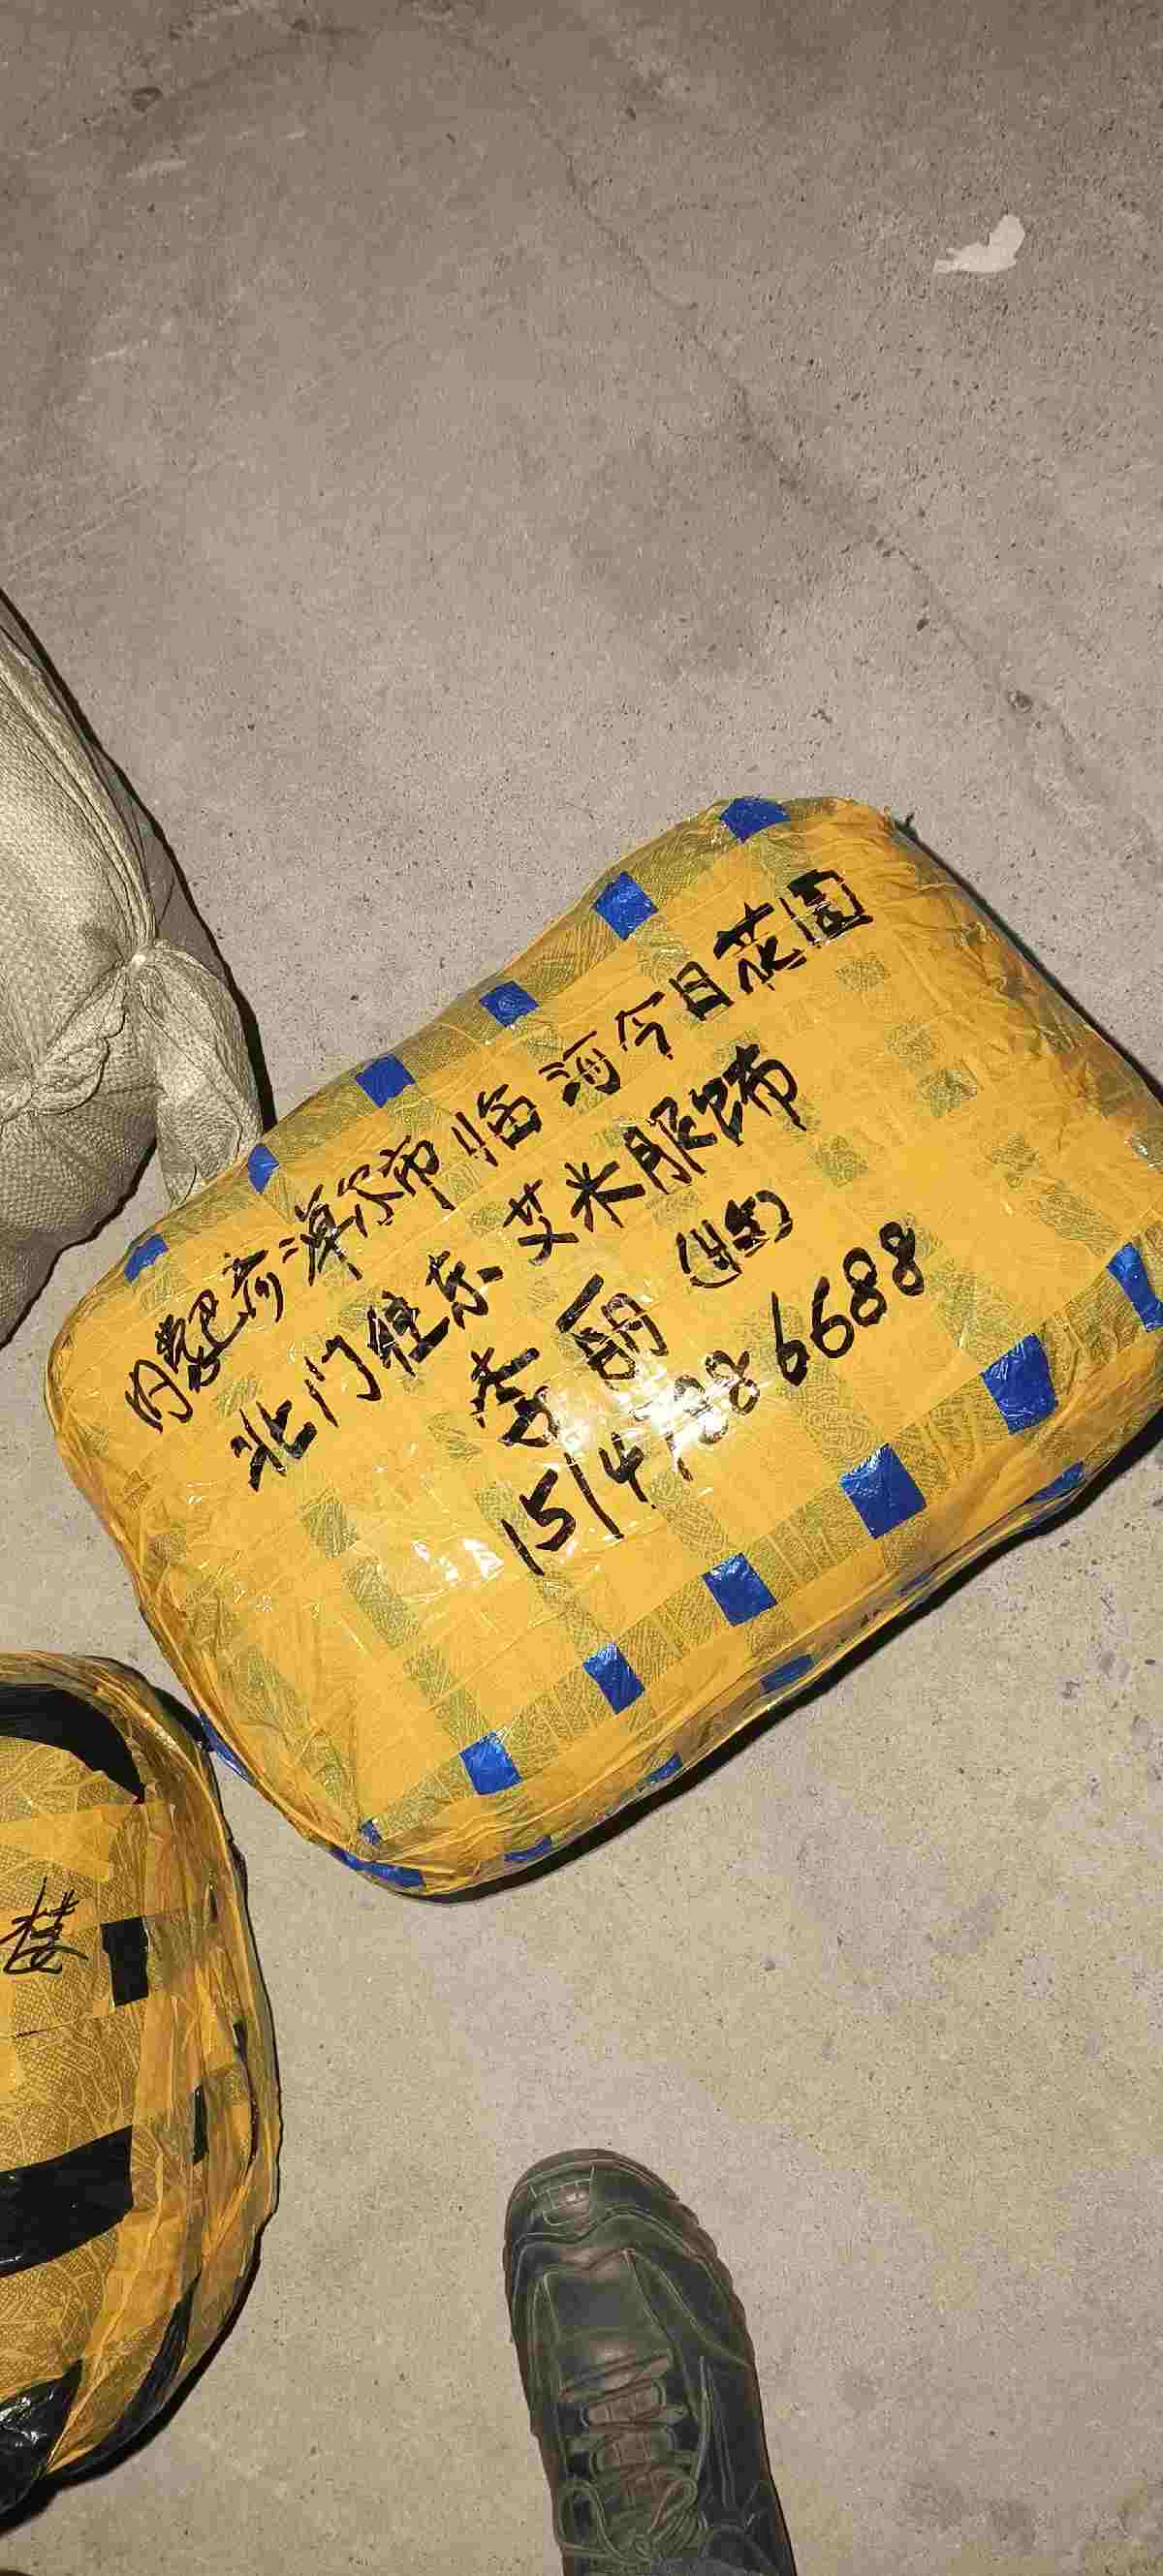 内蒙巴彦淖尔市临河今日花园
北门往东 艾米服饰
李丽 (收)
15147886688
楼